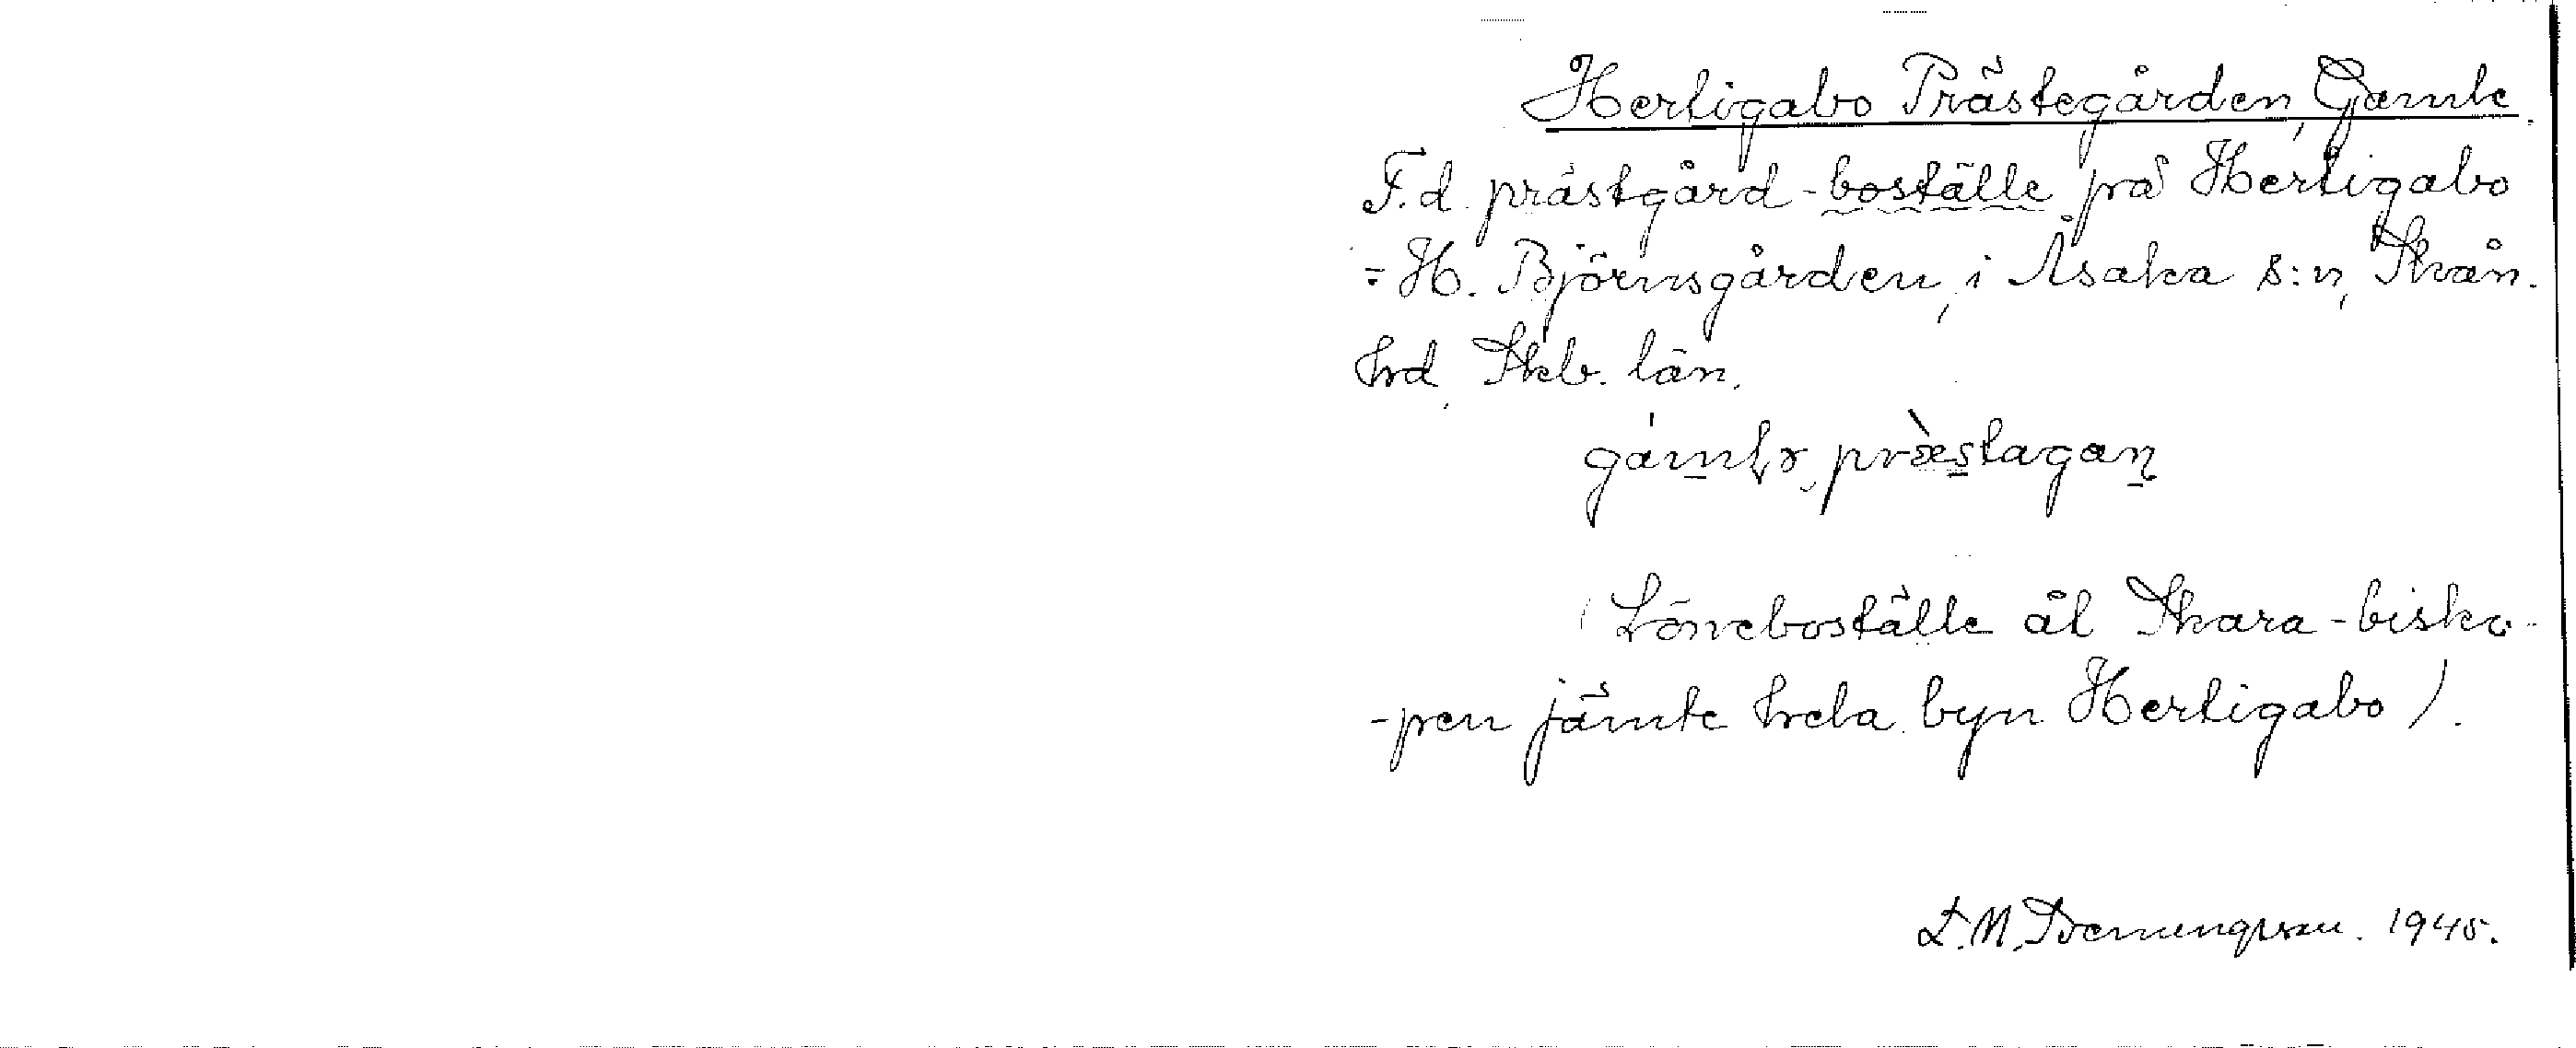 Hertigabo Prästegården, Gamle.
F.d. prästgård-boställe på Hertigabo
= H. Björnsgården, i Åsaka s:n, Skån.
hrd, Skb. län.
præstagan
(Löneboställe åt Skara-bisko-
-pen jämte hela byn Hertigabo).
1945.